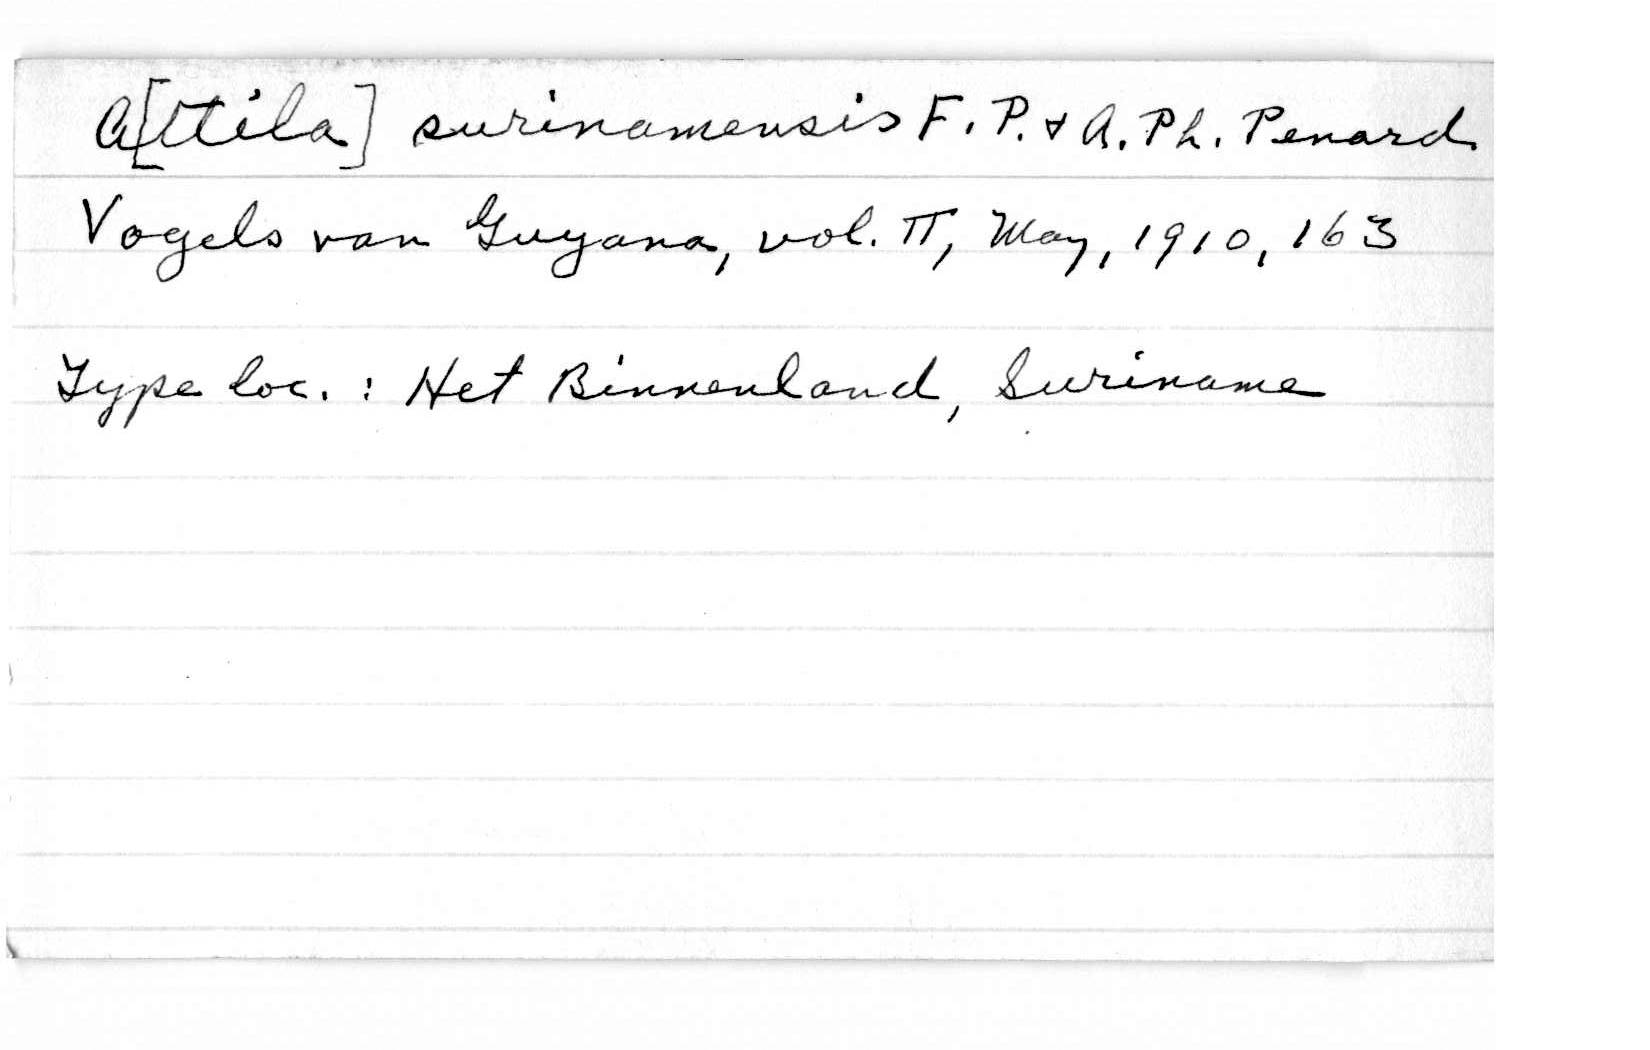 A[ttila] surinamensis F. P. & A. Ph. Penard
Vogels van Guyana, vol. II, May, 1910, 163
Type loc. : Het Binnenland, Suriname